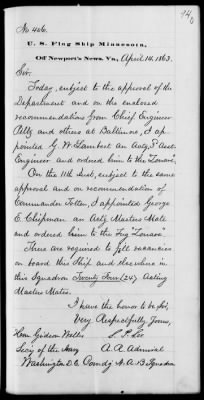 No 406.
U. S. Flag Ship Minnesota,
Off Newport's News, Va, April 14, 1863.
Sir:
Today, subject to the approval of the
Department and on the enclosed
recommendations from Chief Engineer
and others at Baltimore, I ap-
pointed G. W. Lambert an Actg 3d Asst.
Engineer and ordered him to the
On the 11th Inst, subject to the same
approval and on recommendation of
Commander Totten, I appointed George
E. Chipman an Actg Masters Mate
and ordered him to the Tug
There are required to fill vacancies
on board this Ship and elsewhere in
this Squadron Twenty Four (24) Acting
Masters Mates.
I have the honor to be, Sir,
Very Respectfully Yours,
Hon. Gideon Welles S. P. Lee
Secy of the Navy A. R. Admiral
Washington D. C. Comdg N. A. B. Squadron